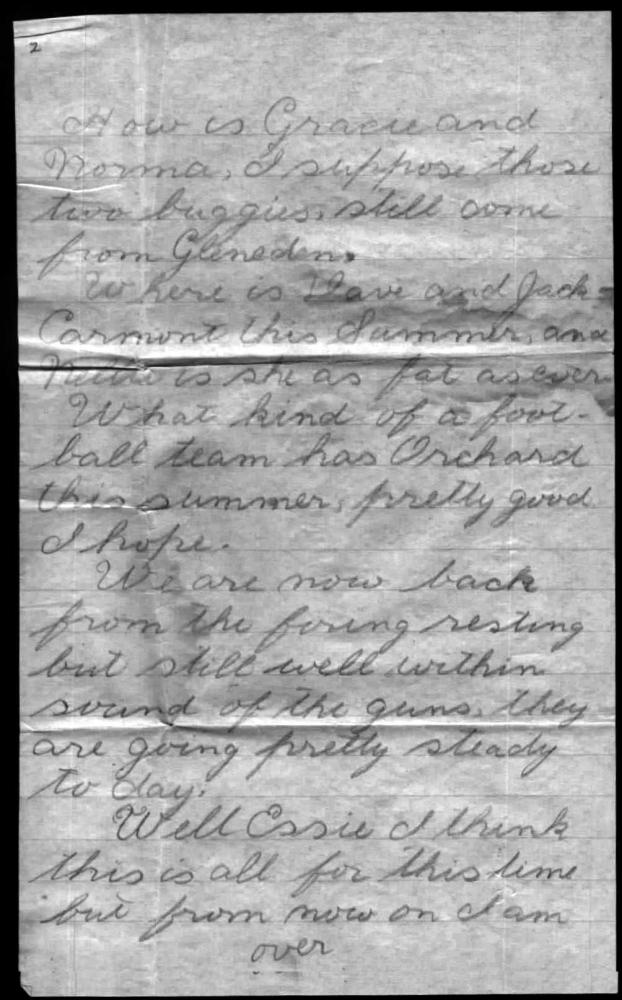 2
How is Gracie and
Norma, I suppose those
two buggies, still come
from Gleneden.
Where is Dave and Jack
Carmont this Summer, and
is she as fat as ever.
What kind of a foot-
ball team has Orchard
this summer, pretty good
I hope.
We are now back
from the firing resting
but still well within
sound of the guns, they
are going pretty steady
to day.
Well Essie I think
this is all for this time
but from now on I am
over